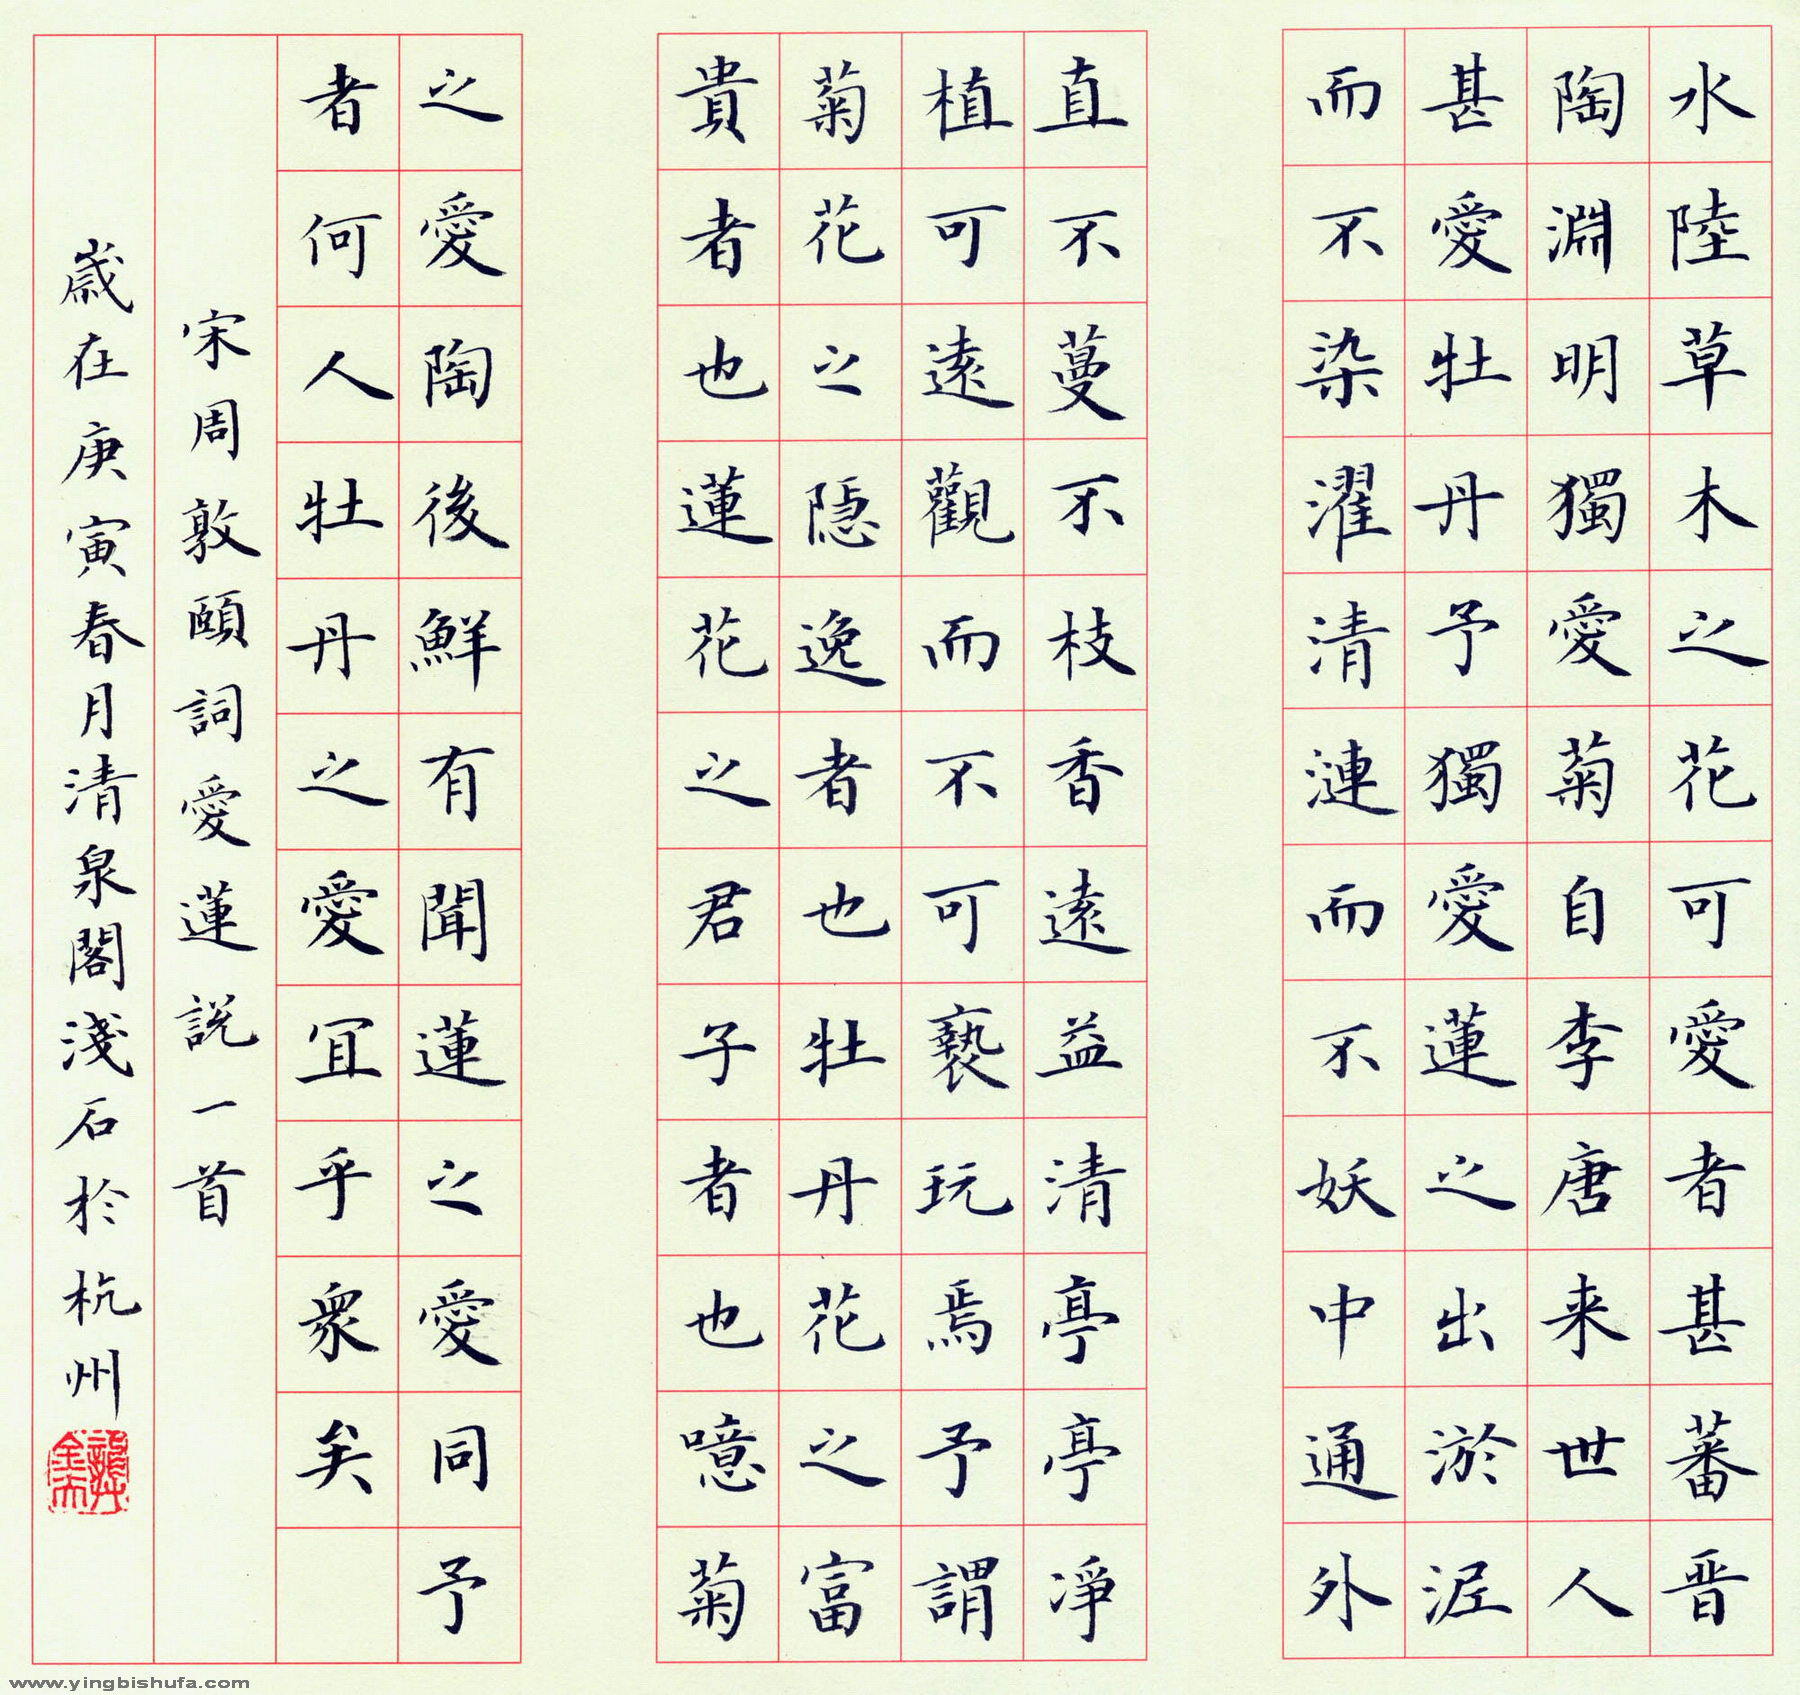 水陸草木之花可愛者甚蕃晋
陶淵明獨愛菊自李唐来世人
甚愛牡丹予獨愛蓮之出淤泥
而不染濯清漣而不妖中通外
直不蔓不枝香遠益清亭亭凈
植可遠觀而不可褻玩焉予謂
菊花之隱逸者也牡丹花之富
貴者也蓮花之君子者也噫菊
之愛陶後鮮有聞蓮之愛同予
者何人牡丹之愛宜乎衆矣
宋周敦頤詞愛蓮説一首
歲在庚寅春月清泉閣淺石於杭州
www.yingbishufa.com